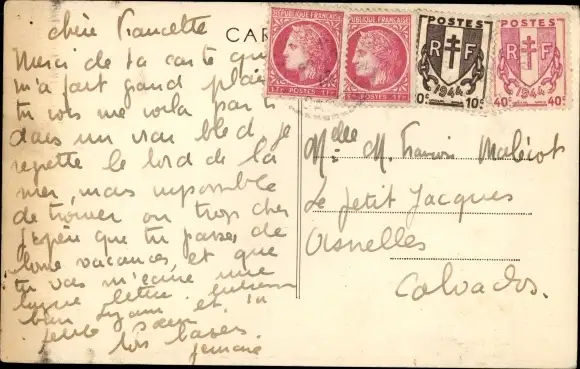 chère Francette
CAR
Merci de ta carte qui
m'a fait grand plaisir
tu vois me voila partie
dans un vrai bled, je
regrette le bord de la
mer, mais impossible
de trouver ou trop cher
j'espère que tu passes de
bonne vacances, et que
tu vas m'écrire une
longue lettre.
bien et
petite
bons baisers
RÉPUBLIQUE FRANÇAISE
1F POSTES 1F
RÉPUBLIQUE FRANÇAISE
POSTES 1F
POSTES
RF
1944
10c 10c
POSTES
RF
1944
40c 40c
Melle M. Malécot
Le Petit Jacques
Asnelles
Calvados.